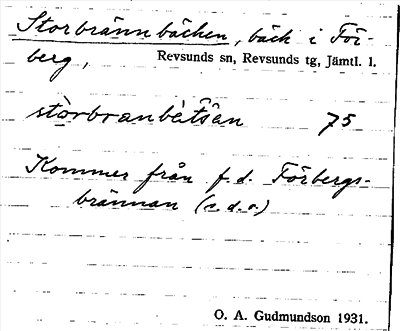 Storbrännbäcken, bäck i För-
berg, Revsunds sn, Revsunds tg, Jämtl. l.
75
Kommer från f.d. Förbergs-
brännan (s.d.o.)
O. A. Gudmundson 1931.